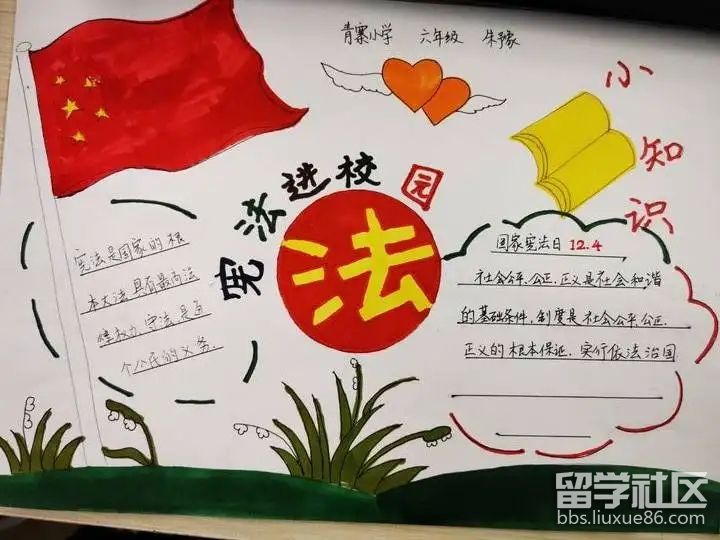 青寨小学 六年级 朱豫
小知识
宪法进校园
法
宪法是国家的根
本大法,具有最高法
律权力,守法是每
个公民的义务.
国家宪法日 12.4
社会公平、公正、正义是社会和谐
的基础条件,制度是社会公平、公正、
正义的根本保证.实行依法治国
留学社区
bbs.liuxue86.com